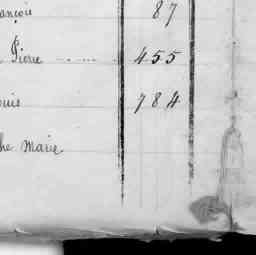 ançois 87
Pierre 455
ouis 784
he Marie